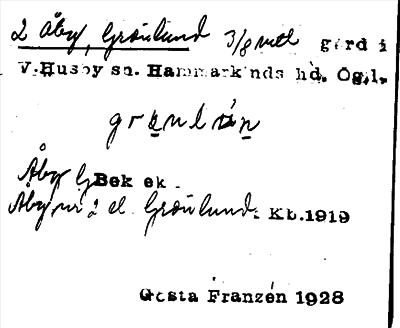 2 Åby, Grönlund 3/8 mtl gård i
V.Husby sn. Hammarkinds hd. Ögl.
Åby G Bek ek.
Åby nr 2 el. Grönlund: Kb.1919
Gösta Franzén 1928